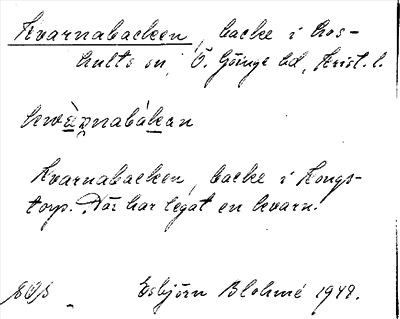 Kvarnabacken, backe i Los-
hults sn, Ö. Göinge hd, Krist. l.
Kvarnabacken, backe i Kongs-
torp. Där har legat en kvarn.
Esbjörn Blohmé 1948.